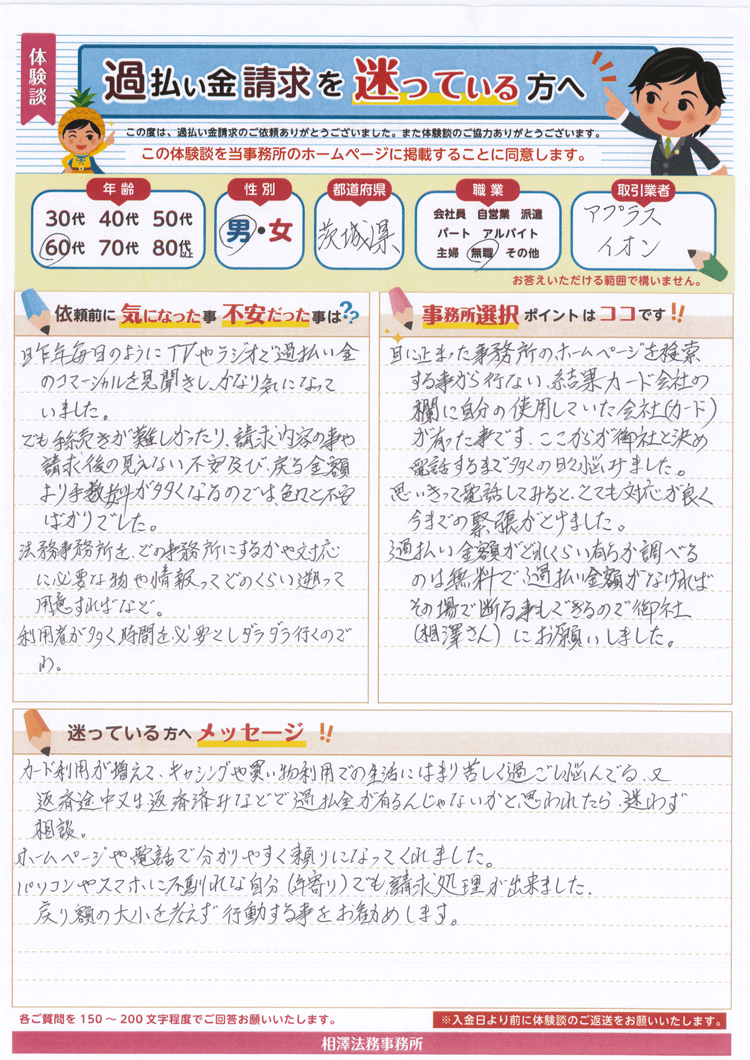 体験談
過払い金請求を迷っている方へ
この度は、過払い金請求のご依頼ありがとうございました。また体験談のご協力ありがとうございます。
この体験談を当事務所のホームページに掲載することに同意します。
年齢
30代 40代 50代
60代 70代 80代以上
性別
男・女
都道府県
茨城県
職業
会社員 自営業 派遣
パート アルバイト
主婦 無職 その他
取引業者
アプラス
イオン
お答えいただける範囲で構いません。
依頼前に気になった事 不安だった事は??
昨年毎日のようにTVやラジオで過払い金
のコマーシャルを見聞きし、かなり気になって
いました。
でも手続きが難しかったり、請求内容の事や
請求後の見えない不安及び、戻る金額
より手数料が多くなるのでは色々と不安
ばかりでした。
法務事務所を、どの事務所にするかや対応
に必要な物や情報ってどのくらい遡って
用意すればなど。
利用者が多く時間を必要としダラダラ行くので
わ。
事務所選択ポイントはココです!!
目に止まった事務所のホームページを検索
する事から行ない、結果カード会社の
欄に自分の使用していた会社(カード)
が有った事です、ここからが御社と決め
電話するまで多くの日々悩みました。
思いきって電話してみると、とても対応が良く
今までの緊張がとけました。
過払い金額がどれくらい有るか調べる
のは無料で過払い金額がなければ
その場で断る事もできるので御社
(相澤さん)にお願いしました。
迷っている方へメッセージ!!
カード利用が増えて、キャシングや買い物利用での生活にはまり苦しく過ごし悩んでる、又
返済途中又は返済済みなどで過払金が有るんじゃないかと思われたら、迷わず
相談。
ホームページや電話で分かりやすく頼りになってくれました。
パソコンやスマホに不馴れな自分(年寄り)でも請求処理が出来ました、
戻り額の大小を考えず行動する事をお勧めします。
各ご質問を150～200文字程度でご回答お願いいたします。
※入金日より前に体験談のご返送をお願いいたします。
相澤法務事務所